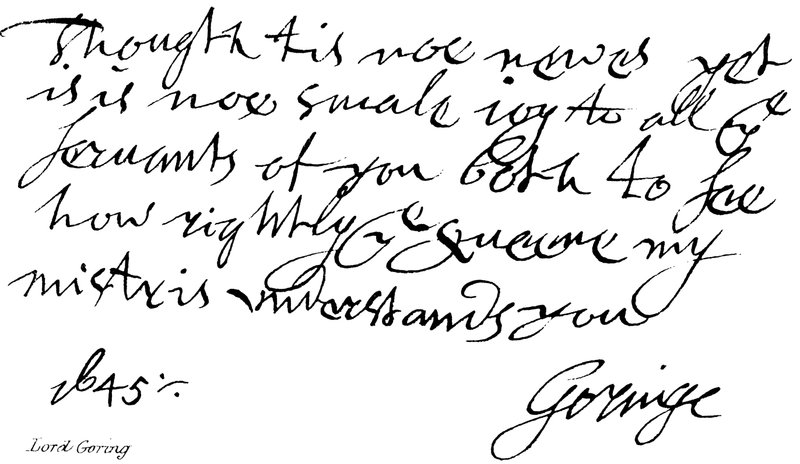 Though tis noe newes yet
is is noe smale ioy to all yͤ
servants of you both to see
how rightly yͤ Queene my
mistris vnderstands you
1645
Goringe
Lord Goring